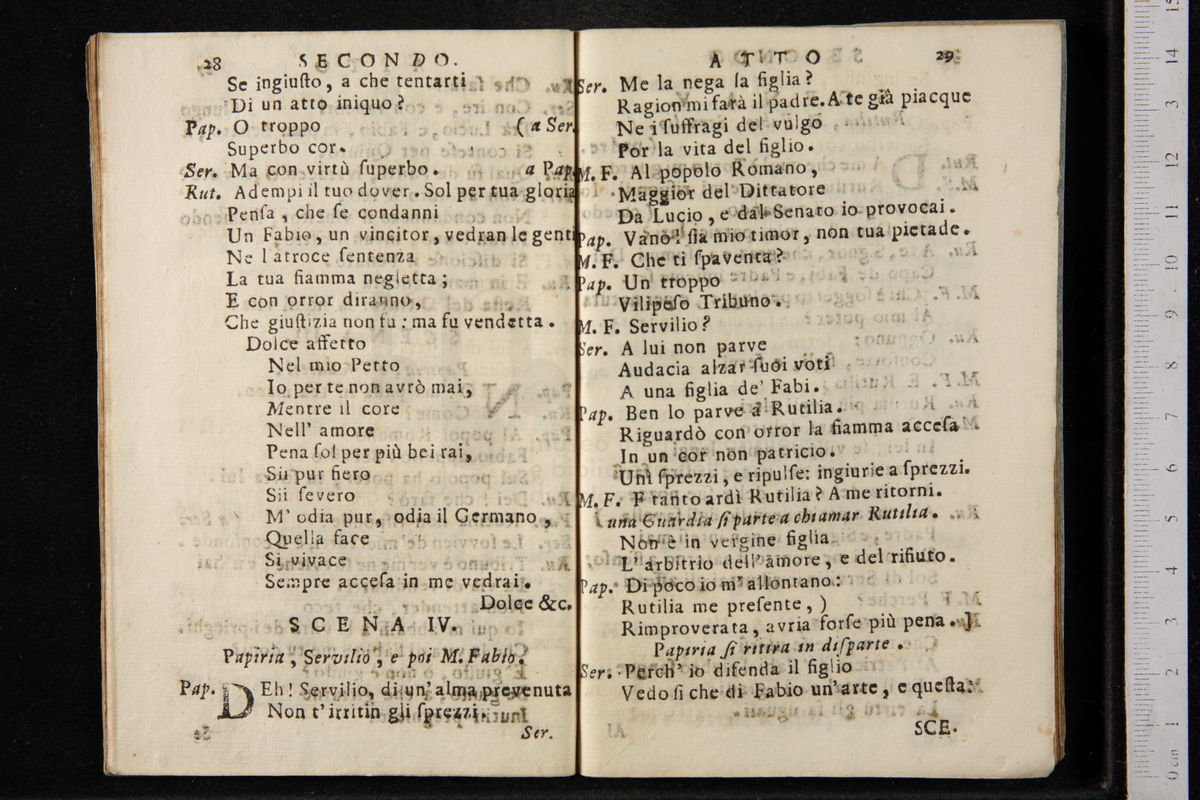 28 SECONDO.
Se ingiuſto, a che tentarti
Di un atto iniquo?
Pap. O troppo (a Ser.
Superbo cor.
Ser. Ma con virtù ſuperbo. a Pap.
Rut. Adempi il tuo dover. Sol per tua gloria
Penſa, che ſe condanni
Un Fabio, un vincitor, vedran le genti
Ne l'atroce ſentenza
La tua fiamma negletta;
E con orror diranno,
Che giuſtizia non fu: ma fu vendetta.
Dolce affetto
Nel mio Petto
Io per te non avrò mai,
Mentre il core
Nell' amore
Pena ſol per più bei rai,
Sii pur fiero
Sii ſevero
M' odia pur, odia il Germano,
Quella face
Si vivace
Sempre acceſa in me vedrai.
Dolce &c.
SCENA IV.
Papiria, Servilio, e poi M. Fabio.
Pap. DEh! Servilio, di un' alma prevenuta
Non t'irritin gli ſprezzi.
Ser.
ATTO 29
Ser. Me la nega la figlia?
Ragion mi farà il padre. A te già piacque
Ne i ſuffragi del vulgo
Por la vita del figlio.
M. F. Al popolo Romano,
Maggior del Dittatore
Da Lucio, e dal Senato io provocai.
Pap. Vano ſia mio timor, non tua pietade.
M. F. Che ti ſpaventa?
Pap. Un troppo
Vilipeſo Tribuno.
M. F. Servilio?
Ser. A lui non parve
Audacia alzar ſuoi voti
A una figlia de' Fabi.
Pap. Ben lo parve a Rutilia.
Riguardò con orror la fiamma acceſa
In un cor non patricio.
Unì ſprezzi, e ripulſe: ingiurie a ſprezzi.
M. F. E tanto ardì Rutilia? A me ritorni.
(una Guardia ſi parte a chiamar Rutilia.
Non è in vergine figlia
L' arbitrio dell' amore, e del rifiuto.
Pap. Di poco io m' allontano:
Rutilia me preſente, )
Rimproverata, avria forſe più pena. J
Papiria ſi ritira in diſparte.
Ser. Perch' io difenda il figlio
Vedo ſi che di Fabio un' arte, e queſta.
SCE.